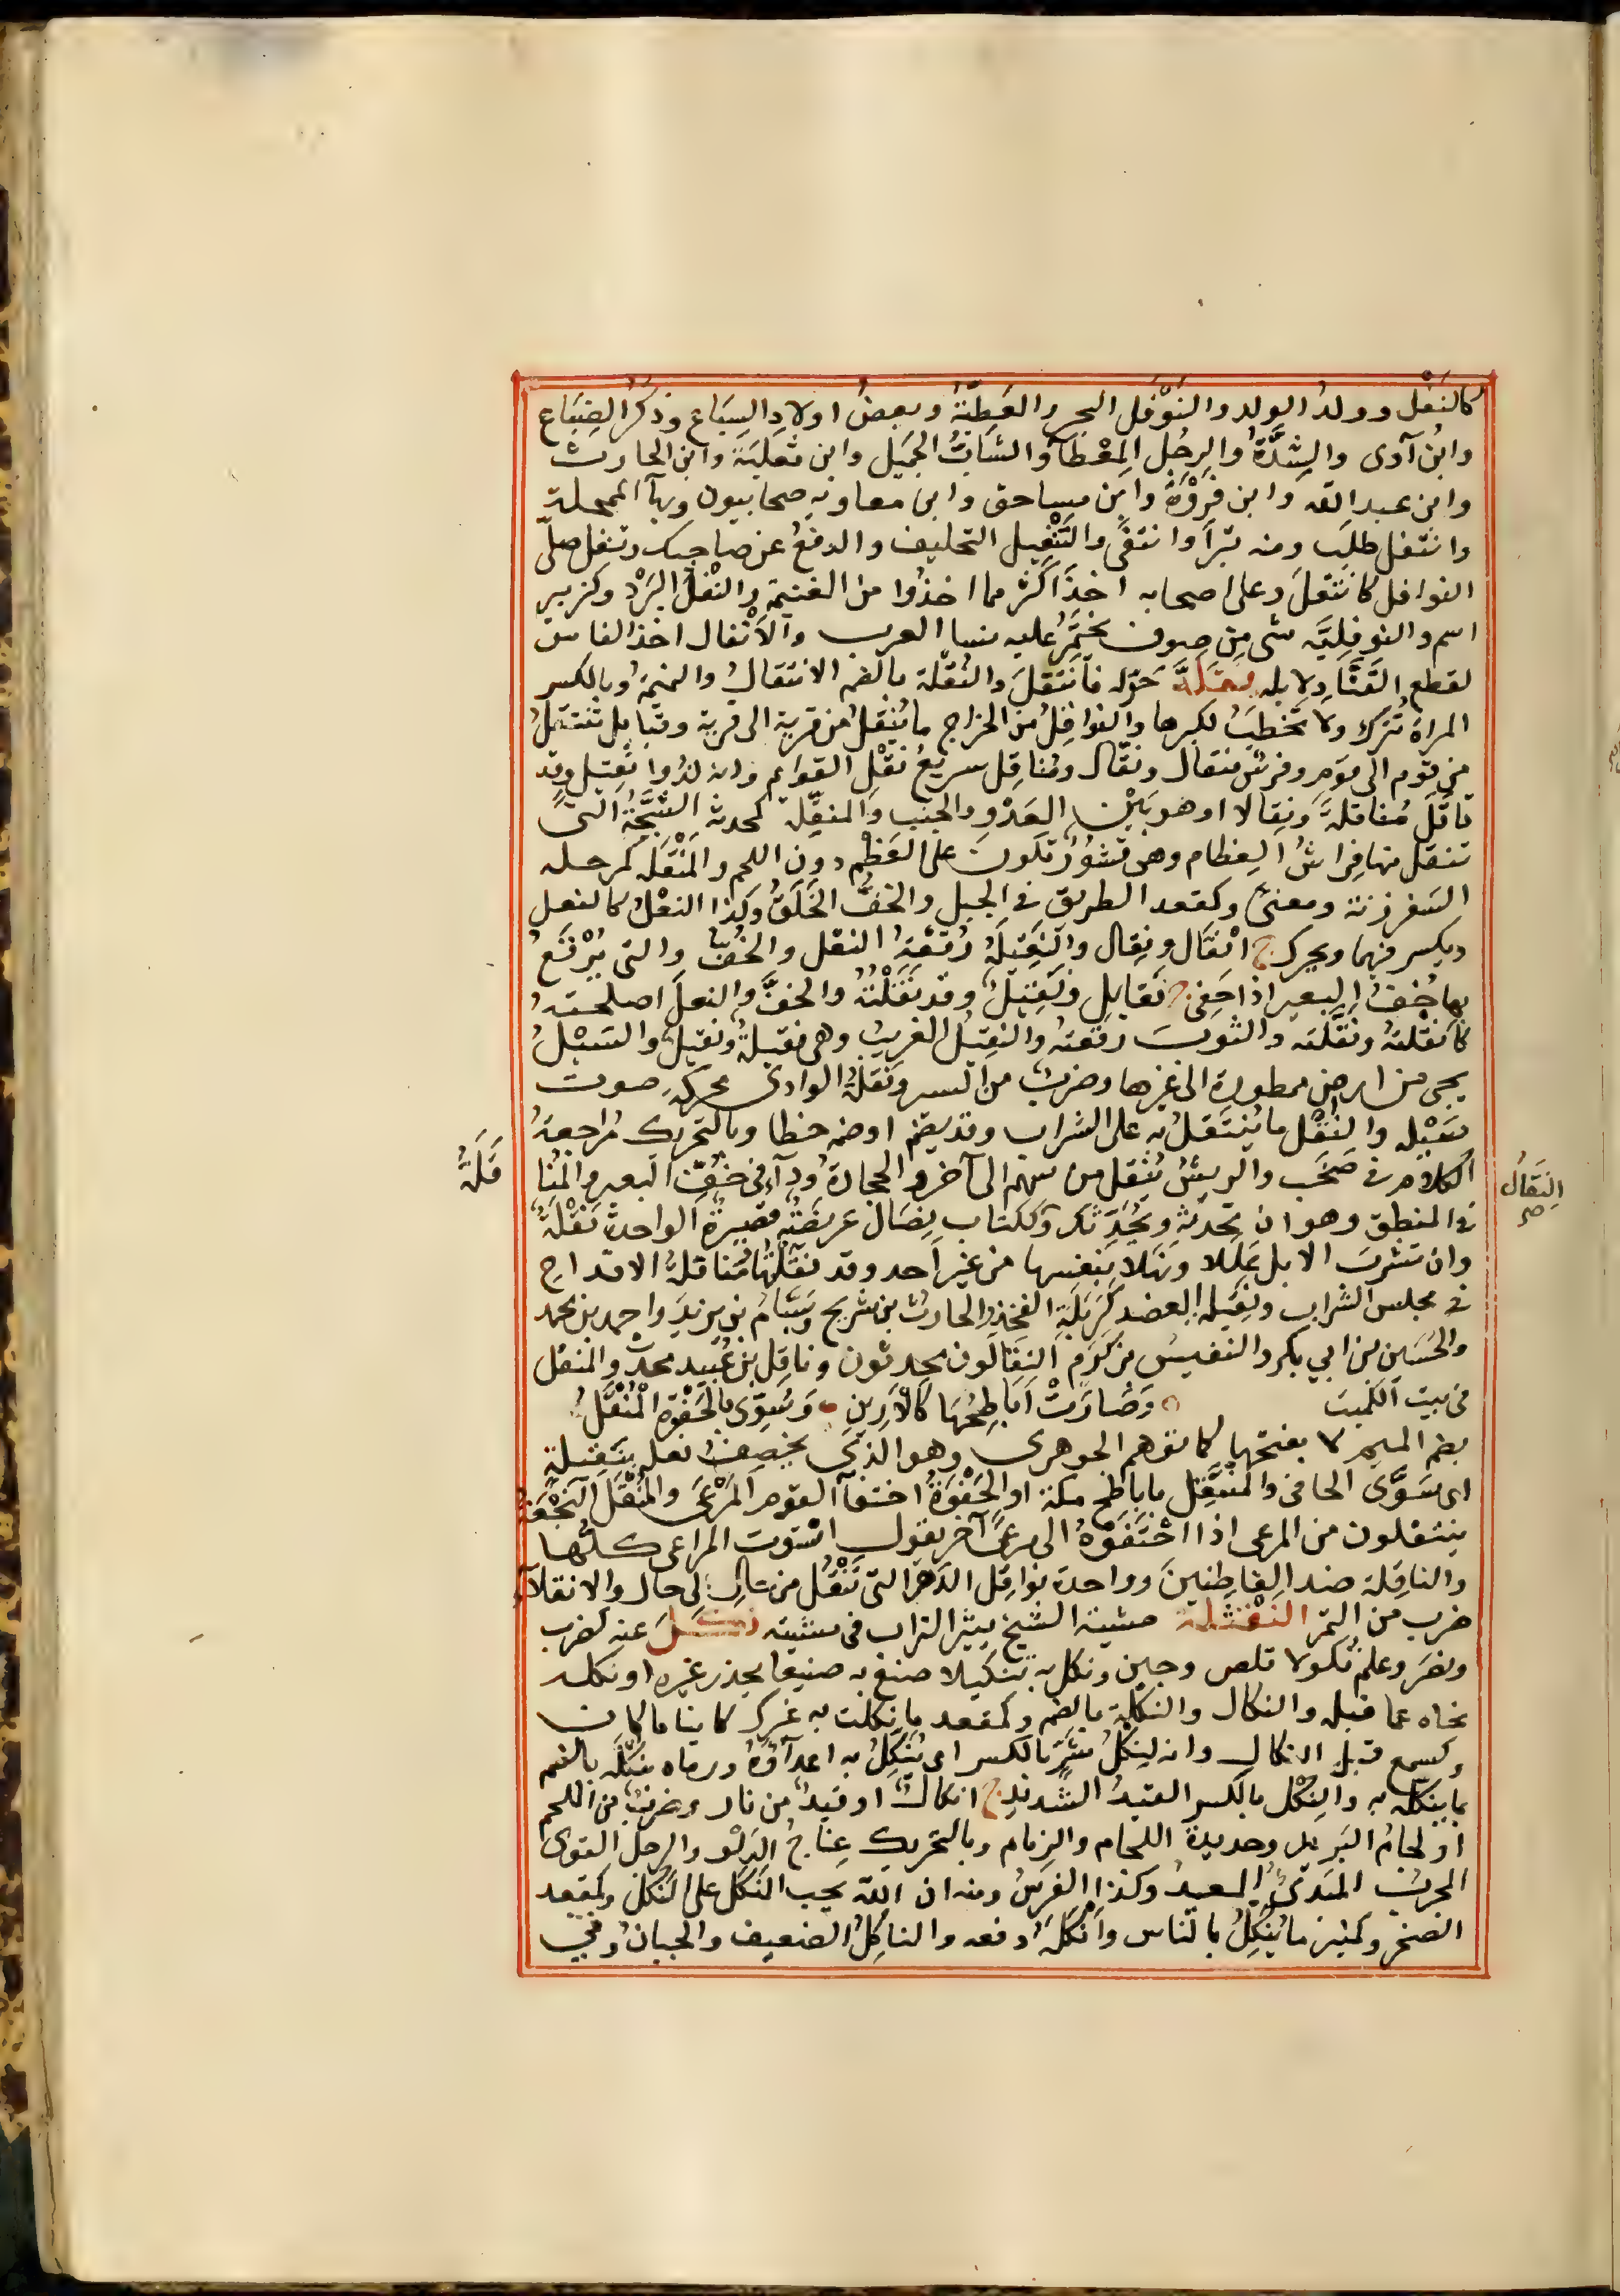 كالنَفْل وولدُ الولد والنَوْفل البحر والعَطِيّةُ وبعضُ اولادِ السِبَاعِ وذكَرُ الضِبَاعِ
وابنُ آوى والشِدَّةُ والرجُل المِعْطَآءُ والشَابُّ الجَميل وابن ثعلبَة وابن الحارث
وابن عبدالله وابن فَرْوَةَ وابن مساحق وابن معاوية صحابيون وبهآ المحلة
وانتفل طلبَ ومنه تبرّأ وانتفَى والتَنْفِيل التحليف والدفعُ عن صاحبك وتنفل صلّى
النوافل كانتفلَ وعلى اصحابه اخذَ اكثر مما اخذُوا من الغنيمة والنَفْلُ البَرْد وكزبير
اسم والنوفِليَّه شى مِن صوف يختَمِرُ عليه نسا العرب والانْفال اخذ الفاس
لقطع القَتَادِ لابله نقَلَهُ حَوّله فانتَقلَ والنُقْلة بالضم الانتقالُ والنميمةُ وبالكسر
المراة تُترَك ولا تُخطبُ لكبرها والنواقِلُ من الخراج ما يُنقلُ من قرية الى قرية وقبايل تنتقلُ
من قوم الى قوم وفرس منقال ونقّال ومُناقِل سريعُ نَقْل القوايم وانه لذُو نَقِيل وقد
ناقَلَ مُناقلةً ونِقالا او هو بَيْن العَدْوِ والخبب والمنقِّلة كمحدثة الشَجَّةُ التى
تنقل منها فِراشُ العِظام وهى قشورٌ تكونَ على العَظْم دون اللحم والمَنْقَلة كمرحله
السَفر زنة ومعنىً وكمقعد الطريق فى الجبل والخفُّ الخَلَقُ وكذا النعْلُ كالنعل
ويكسر فيهما ويحرك ج انْقَال ونِقال والنَقِيلةُ رُقعَةُ النقل والخُفِّ والتى يُرْقَعُ
بها خُفُّ البعير اذا حَفِىَ ج نَقايل ونَقِيلٌ وقد نَقَلْتُه والخفَّ والنعلَ اصلحته
كانقلته ونَقّلته والثوبَ رقعتهُ والنقِيلُ الغريبُ وهى نقيلةٌ ونقيلٌ والسَيْلُ
يجى من ارض ممطورة الى غيرها وضربٌ من السير ونَقلَةُ الوادى محركة صوت
سَيْله والنُقْل ما يُتنَقلُ به على الشراب وقد يضم او ضمه خطا وبالتحريك مُراجعةُ
الكلام فى صَخَبٍ والريشُ يُنقل من سهم الى آخر والحجارة ودآء فى خُفِّ البعير والمُنَا
قَلَةُ
النِقَالُ صح
فى المنطق وهو ان تحدثه ويُحَدِّثك وككتاب نِصَال عريضةٌ قصيرةٌ الواحدة نَقْلَةٌ
وان تشربَ الابل عَلَلا ونَهَلا بنفسها من غير احد وقد نقلْتُها مُناقلةُ الاقداح
فى مجلس الشراب ونَقِيله العضد كرَبلَةِ الفخذ والحارث بن شريح وبَسّام بن يزيد واحمد بن محمد
والحُسَين بن ابي بكر والنفيس بن كَرَم النَقّالون محدثون وناقل بن عُبيد محدثٌ والمنقل
فى بيت الكميت وَصَارَتْ ابَاطِحُهَا كالاَرِينِ وَسُوِّىَ بالحَفْوَةِ الْمُنْقَلُ
بضم الميم لا بفتحها كما توهم الجوهرى وهو الذى يخصفُ نعله بنَقِيلةٍ
اى سَوَّى الحافى والمنَقِّل باباطح مكة او الحَفْوَةُ احتفآ القوم المَرْعَى والمُنْقَل النجْعَة
ينتقلون من المرعى اذا احْتَفَوْهُ الى مرعًى آخر يقول استوت المراعى كلُّها
والناقِلة ضد القاطِنينَ وواحدة نواقل الدَهْر التى تَنْقُل من حال الى حال والانقلآء
ضرب من التمر النَقْثَلة مشية الشيخ يثير التراب فى مشيته نكَلَ عنه كضرب
ونصَر وعلم نكولا نكص وجبن ونكل به تنكيلا صنع به صنيعا يحذر غيره او نكله
نحاه عما قبله والنكال والنكلة بالضم وكمقعد ما نكلت به غيرك كاينا ما كان
وكسمع قبل النكال وانه لنِكلُ شَرٍّ بالكسر اى يُنَكِلُ به اعدآؤهُ ورماه بنُكْلَة بالضم
بما ينكله به والنِكْل بالكسر القيدُ الشديد ج انكالٌ او قيدٌ من نار وضربٌ من اللجم
او لجامُ البَريد وحديدة اللجام والزمام وبالتحريك عِناجُ الدَلْو والرجل القوى
المجربُ المبدئُ المعيدُ وكذا الفرسُ ومنه ان الله يحب النَكَل على النَكَل وكمقعد
الصخر وكمنبر ما يُنَكِلُ بالناس وانْكَلهُ دفعه والناكِلُ الضعيف والجبانُ وفى